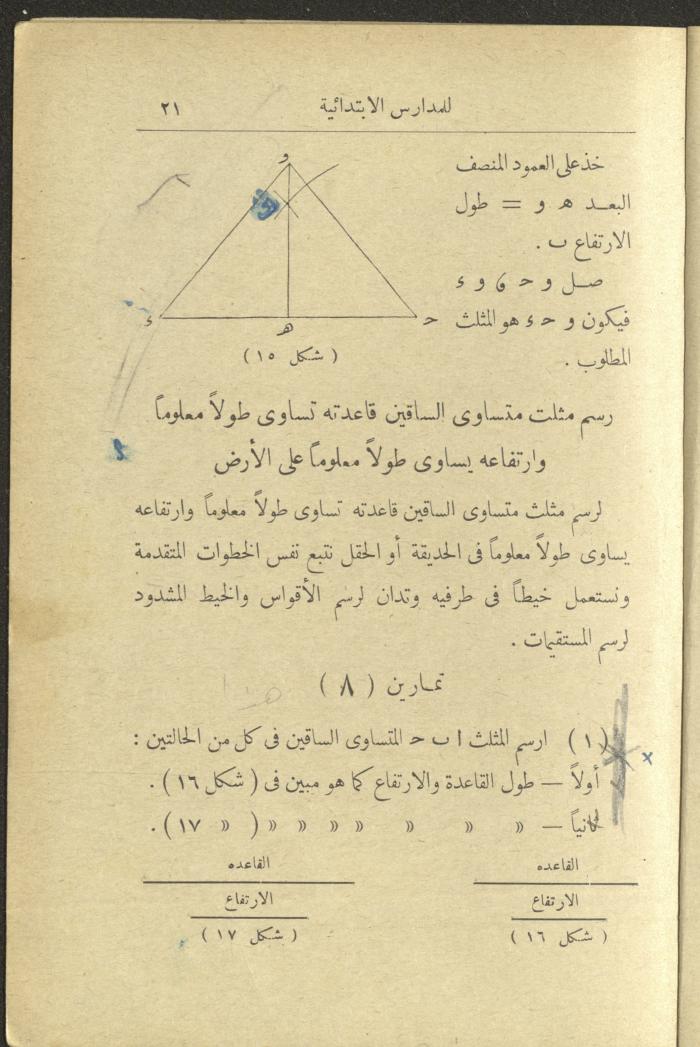 للمدارس الابتدائية ٢١
خذ على العمود المنصف
البعـد ه و = طول
الارتفاع ب .
صـل و ح ى و ء
فيكون و ح ء هو المثلث
المطلوب .
و
ء
ه
ح
( شكل ١٥ )
رسم مثلت متساوى الساقين قاعدته تساوى طولاً معلوماً
وارتفاعه يساوى طولاً معلوماً على الأرض
لرسم مثلث متساوى الساقين قاعدته تساوى طولاً معلوماً وارتفاعه
يساوى طولاً معلوماً فى الحديقة أو الحقل نتبع نفس الخطوات المتقدمة
ونستعمل خيطاً فى طرفيه وتدان لرسم الأقواس والخيط المشدود
لرسم المستقيمات .
تمـارين ( ٨ )
( ١ ) ارسم المثلث ا ب ح المتساوى الساقين فى كل من الحالتين :
أولاً — طول القاعدة والارتفاع كما هو مبين فى ( شكل ١٦ ) .
ثانياً — » » » » » » » ( » ١٧ ) .
القاعده
الارتفاع
( شكل ١٦ )
القاعده
الارتفاع
( شكل ١٧ )